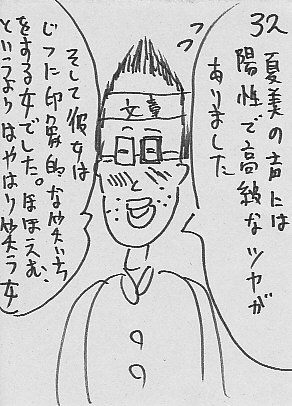 32
夏美の声には
陽性で高級なツヤが
ありました
文章
そして彼女は
じつに印象的な笑い方
をする女でした。ほほえむ、
というよりはやはり笑う女